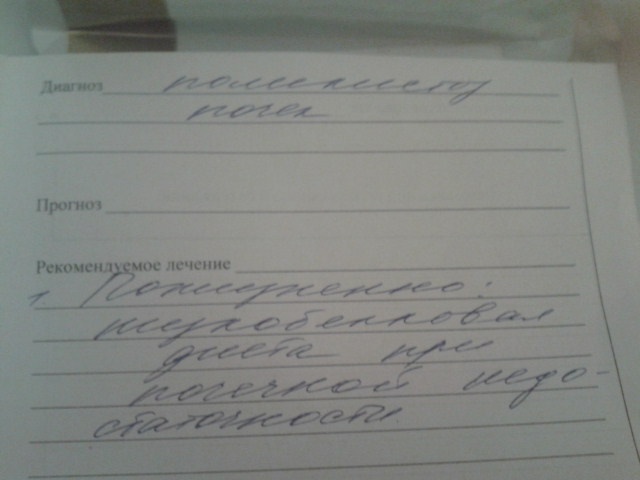 Диагноз поликистоз
почек
Прогноз
Рекомендуемое лечение
1. Пожизненно:
низкобелковая
диета при
почечной недо-
статочности.